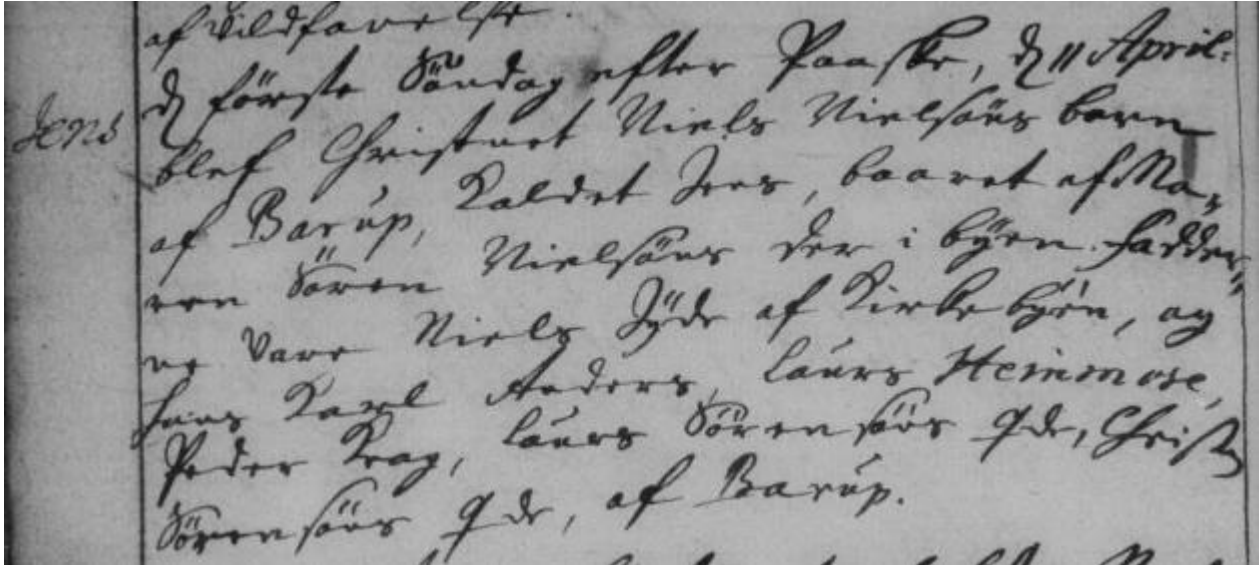 af Vildfarelse.
d. förste Söndag efter Paaske, d. 11 April.
Jens
blef Christnet Niels Nielsöns barn
af Barup, Kaldet Jens, baaret af Ma-
ren Sören Nielsöns der i byen. Fadder-
ne vare Niels Jyde af Kirkebyen, og
hans Karl Anders, Laurs Hemmose,
Peder Krag, Laurs Sörensöns Qde, Christen
Sörensöns Qde, af Barup.